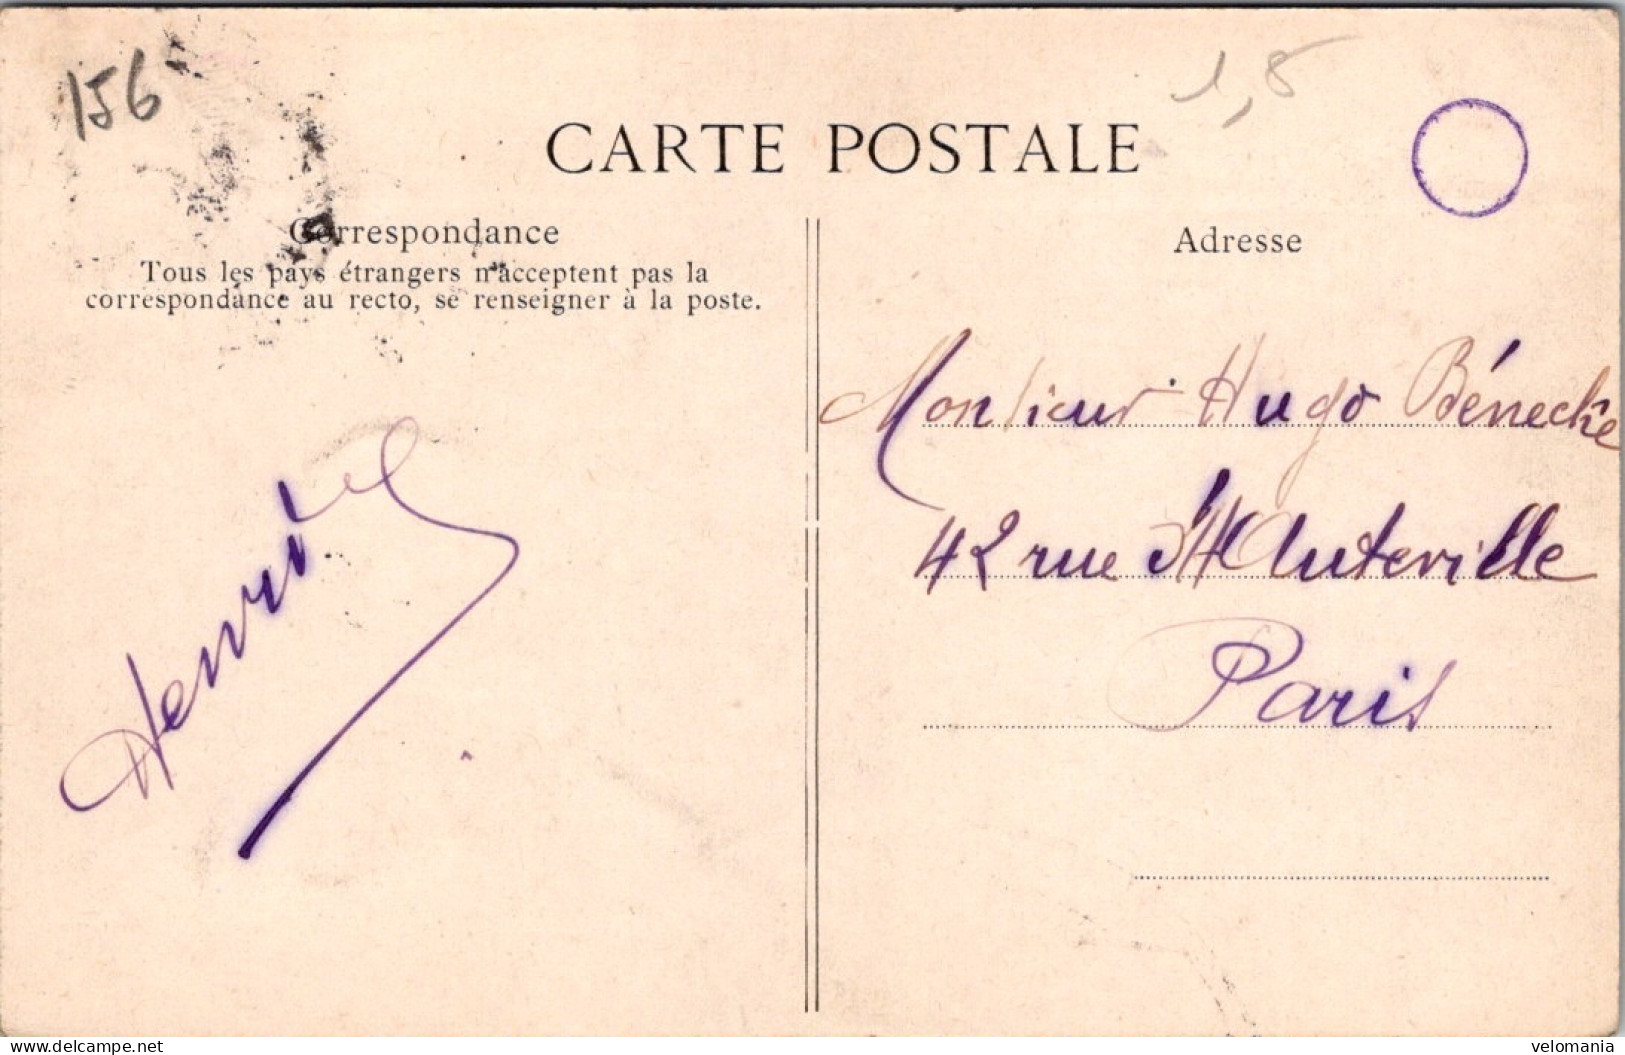 156
1,8
CARTE POSTALE
Correspondance
Tous les pays étrangers n'acceptent pas la
correspondance au recto, se renseigner à la poste.
Henri
Adresse
Monsieur Hugo Bénecke
42 rue d'Hauteville
Paris
www.delcampe.net
velomania